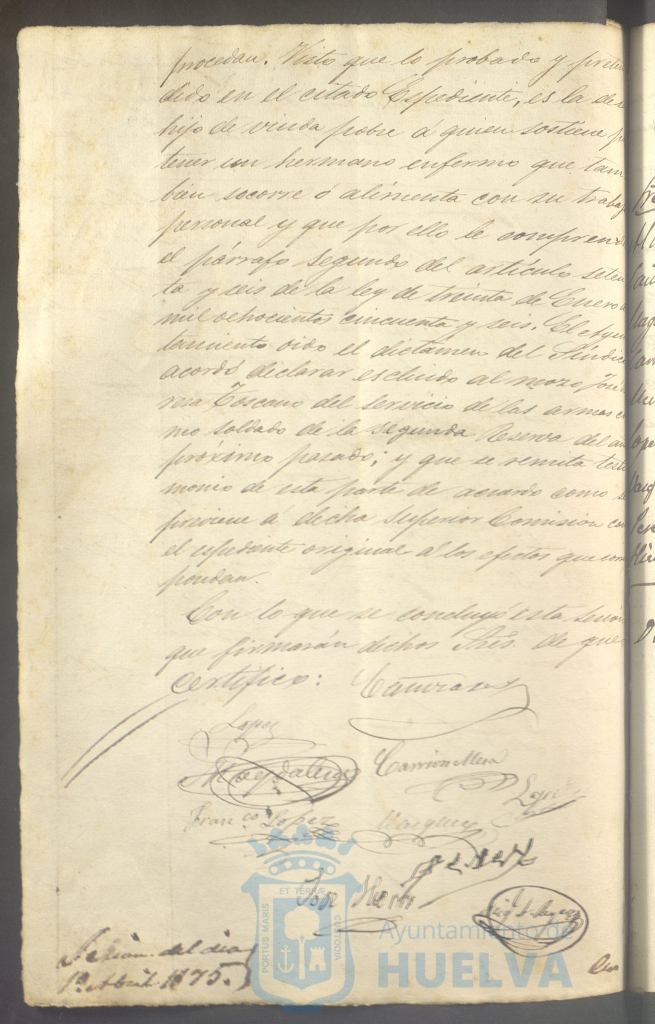 procedan. Visto que lo probado y preten
dido en el citado Expediente, es la de
hijo de viuda pobre á quien sostiene p
tener un hermano enfermo que tam
bien socorre ó alimenta con su trabaj
personal y que por ello le comprende
el párrafo segundo del artículo seten
ta y seis de la ley de treinta de Enero
mil ochocientos cincuenta y seis. El Ayun
tamiento oido el dictamen del Síndico
acordó declarar escluido al mozo José
Toscano del servicio de las armas co
mo soldado de la segunda Reserva del añ
próximo pasado; y que se remita testi
monio de esta parte de acuerdo como se
previene á dicha Superior Comision con
el espediente original á los efectos que corr
pondan.
Con lo que se concluyó esta sesión
que firmarán dichos Sres. de que
certifico:
Lopez
Magdaleno
Carrion Mesa
Lopez
Franco Lopez
Vazquez
José
Sesion del dia
1º Abril 1875.
PORTUS MARIS
ET TERRÆ
CUSTODIA
Ayuntamiento de
HUELVA